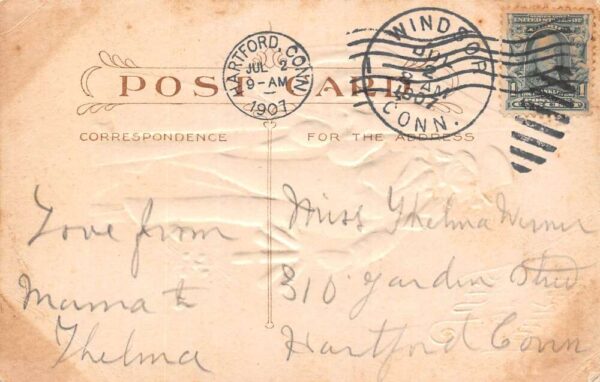 HARTFORD, CONN.
JUL 2
9-AM
1907
WINDSOR
JUL
2
8 AM
1907
CONN.
POST CARD
CORRESPONDENCE
FOR THE ADDRESS
Love from
Mama to
Thelma
Miss Thelma Werner
310 Garden Street
Hartford Conn